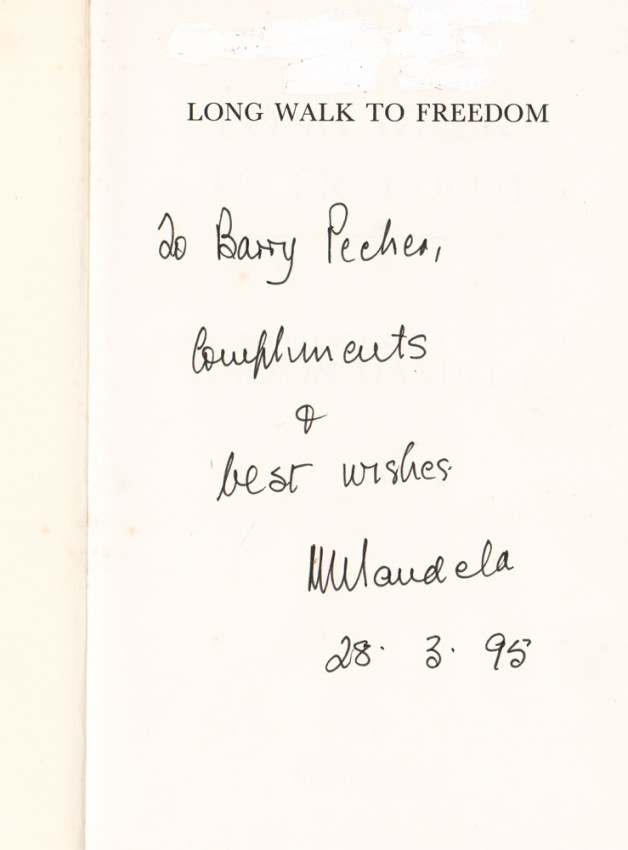 LONG WALK TO FREEDOM
To Barry Pecher,
Compliments
&
best wishes
NMandela
28. 3. 95